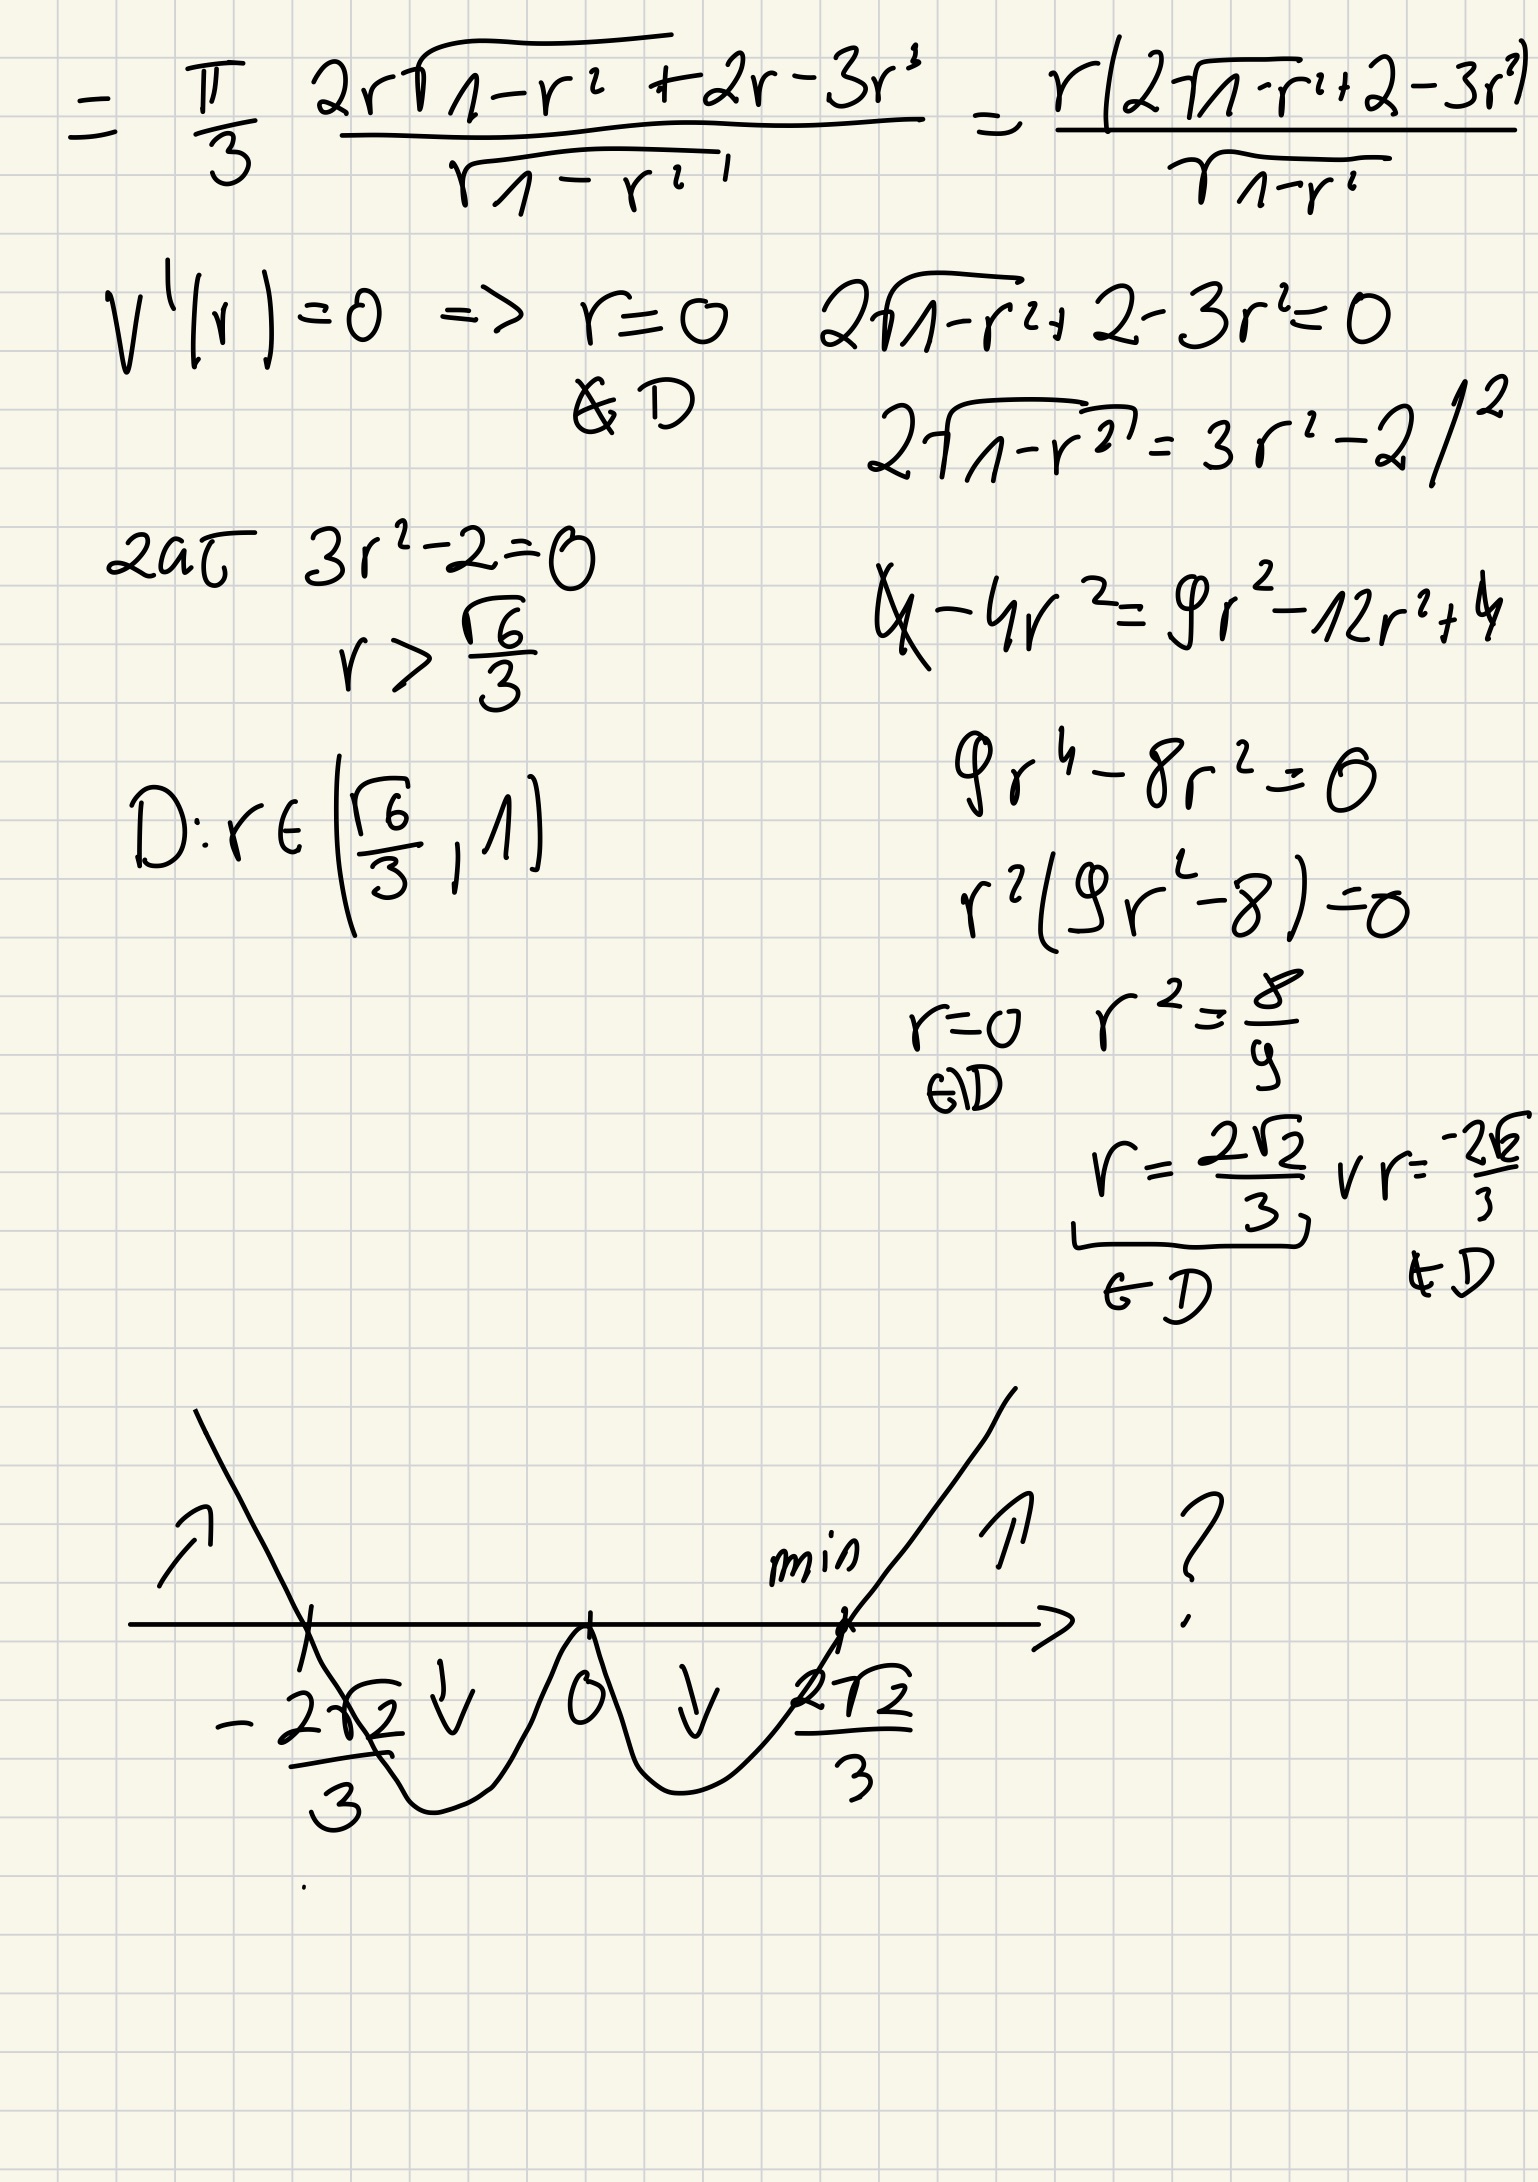 = π/3 (2r√(1-r²) + 2r - 3r³)/√(1-r²) = r(2√(1-r²) + 2 - 3r²)/√(1-r²)
V'(r) = 0 => r = 0 2√(1-r²) + 2 - 3r² = 0
∉ D
2√(1-r²) = 3r² - 2 /²
zał 3r² - 2 = 0
r > √6/3
4 - 4r² = 9r² - 12r² + 4
D: r ∈ (√6/3, 1)
9r⁴ - 8r² = 0
r²(9r² - 8) = 0
r = 0 r² = 8/9
∉ D
r = 2√2/3 v r = -2√2/3
∈ D ∉ D
↗ min ↗ ?
-2√2/3 ↓ 0 ↓ 2√2/3